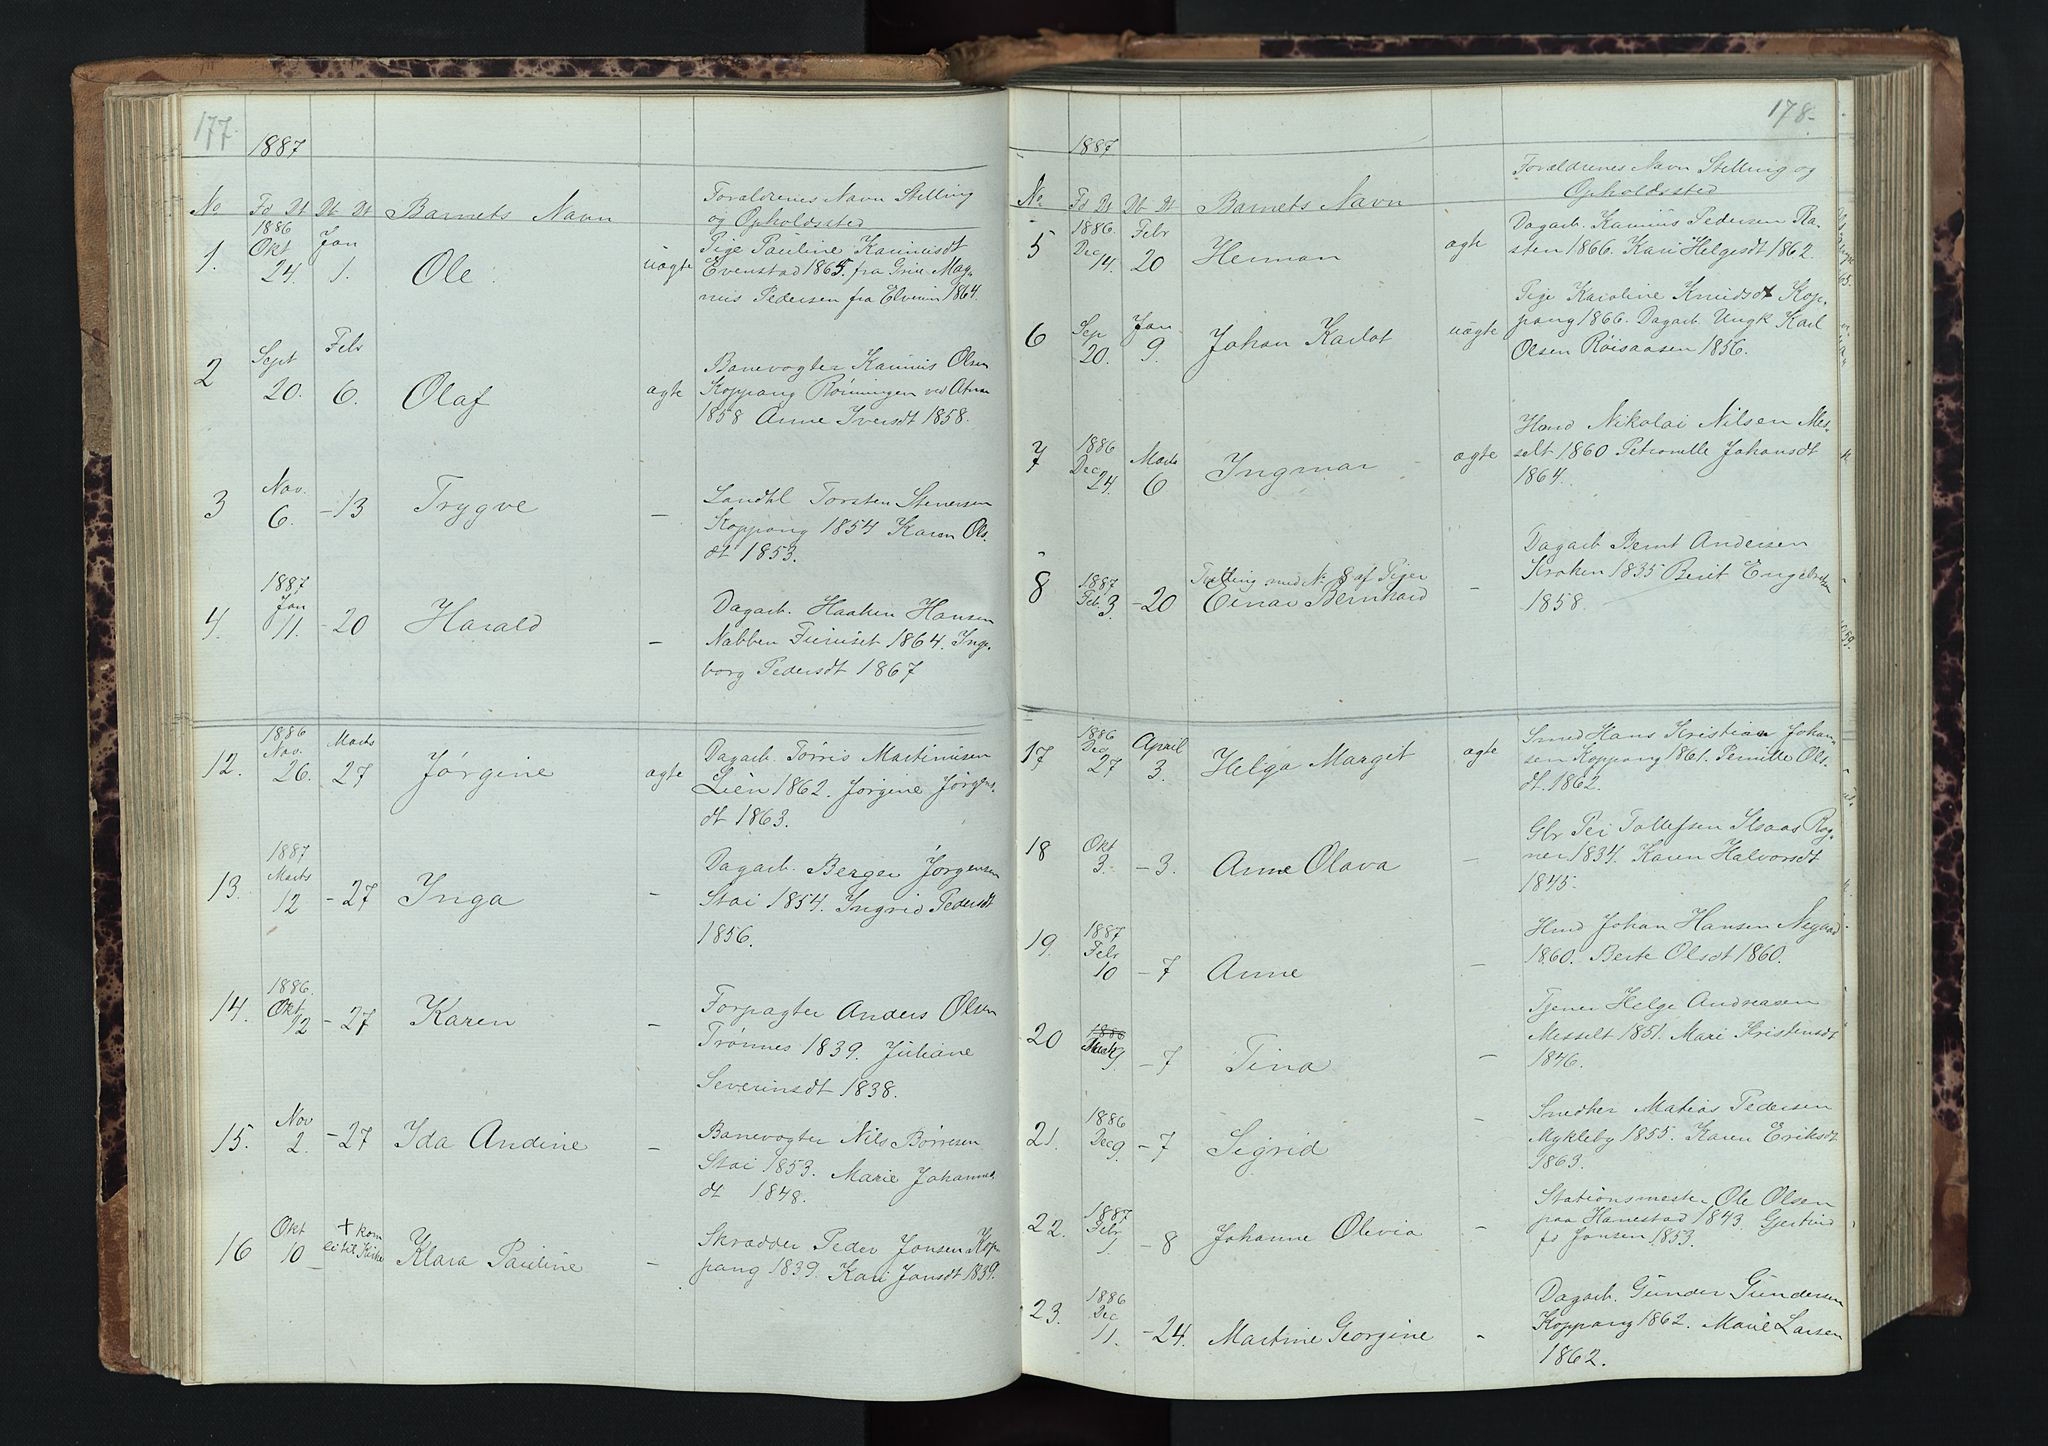 177
1887
No Fd Dt Db Dt Barnets Navn
Forældrenes Navn Stilling
og Opholdssted
1. 1886 Okt 24. Jan 1. Ole uægte
Pige Pauline Karinusdt
Evenstad 1865. fra Grue Mag-
nus Pedersen fra Elverum 1864.
2 Sept 20. Febr 6. Olaf ægte
Banevogter Karinus Olsen
Koppang Rønningen ved Atnaa
1858 Anne Iversdt 1858.
3 Nov. 6. - 13 Trygve -
Landhl Torsten Stenersen
Koppang 1854 Karen Ols-
dt 1853.
4. 1887 Jan 11. - 20 Harald -
Dagarb. Haaken Hansen
Nabben Furuset 1864. Inge-
borg Pedersdt 1867
12. 1886 Nov. 26. Marts 27 Jørgine ægte
Dagarb. Tørris Martinusen
Lien 1862. Jørgine Jørgens-
dt 1863.
13. 1887 Marts 12 - 27 Inga -
Dagarb. Berger Jørgensen
Stai 1854. Ingrid Pedersdt
1856.
14. 1886. Okt 12 - 27 Karen -
Forpagter Anders Olsen
Trønnes 1839. Juliane
Severinsdt 1838.
15. Nov 2. - 27 Ida Andine -
Banevogter Nils Børresen
Stai 1853. Marie Johannes-
dt 1848.
16 Okt 10 + kom ei til Kirke Klara Pauline -
Skrædder Peder Jonsen Kop-
pang 1839. Kari Jonsdt 1839.
178-
1887
No Fd Dt Db Dt Barnets Navn
Forældrenes Navn Stilling og
Opholdssted
5 1886. Dec 14. Febr 20 Herman ægte
Dagarb. Karinus Pedersen Ra-
sten 1866. Kari Helgesdt 1862.
6 Sep 20. Jan 9. Johan Karlot uægte
Pige Karoline Knudsdt Kop-
pang 1866. Dagarb. Ungk Karl
Olsen Røisaasen 1856.
7 1886 Dec 24. Marts 6 Ingmar ægte
Hmd Nikolai Nilsen Mes-
selt 1860 Petronille Johansdt
1864.
8 1887 Feb. 3. - 20 Tvilling med No 8 af Piger
Einar Bernhard -
Dagarb Bernt Andersen
Kroken 1835 Berit Engebretsen
1858.
17 1886 Dec 27 April 3. Helga Marget ægte
Smed Hans Kristian Johan-
sen Koppang 1861. Pernille Ols-
dt. 1862.
18 Okt 3. - 3. Anne Olava -
Gbr Per Tollefsen Rog-
ner 1834. Karen Halvorsdt
1845.
19. 1887 Febr 10 - 7 Anne -
Hmd Johan Hansen Nygaard
1860. Berte Olsdt 1860.
20 1886 9. - 7 Tina -
Tjener Helge Andreasen
Messelt 1851. Mari Kristensdt
1846.
21. 1886 Dec 9. - 7 Sigrid -
Snedker Matias Pedersen
Mykleby 1855. Karen Eriksdt
1863.
22. 1887 Febr 1. - 8 Johanne Olivia -
Stationsmester Ole Olsen
paa Hanestad 1843. Gjertrud
fd Jonsen 1853.
23. 1886 Dec 11. - 24. Martine Georgine -
Dagarb. Gunder Gundersen
Koppang 1862. Marie Larsen
1862.